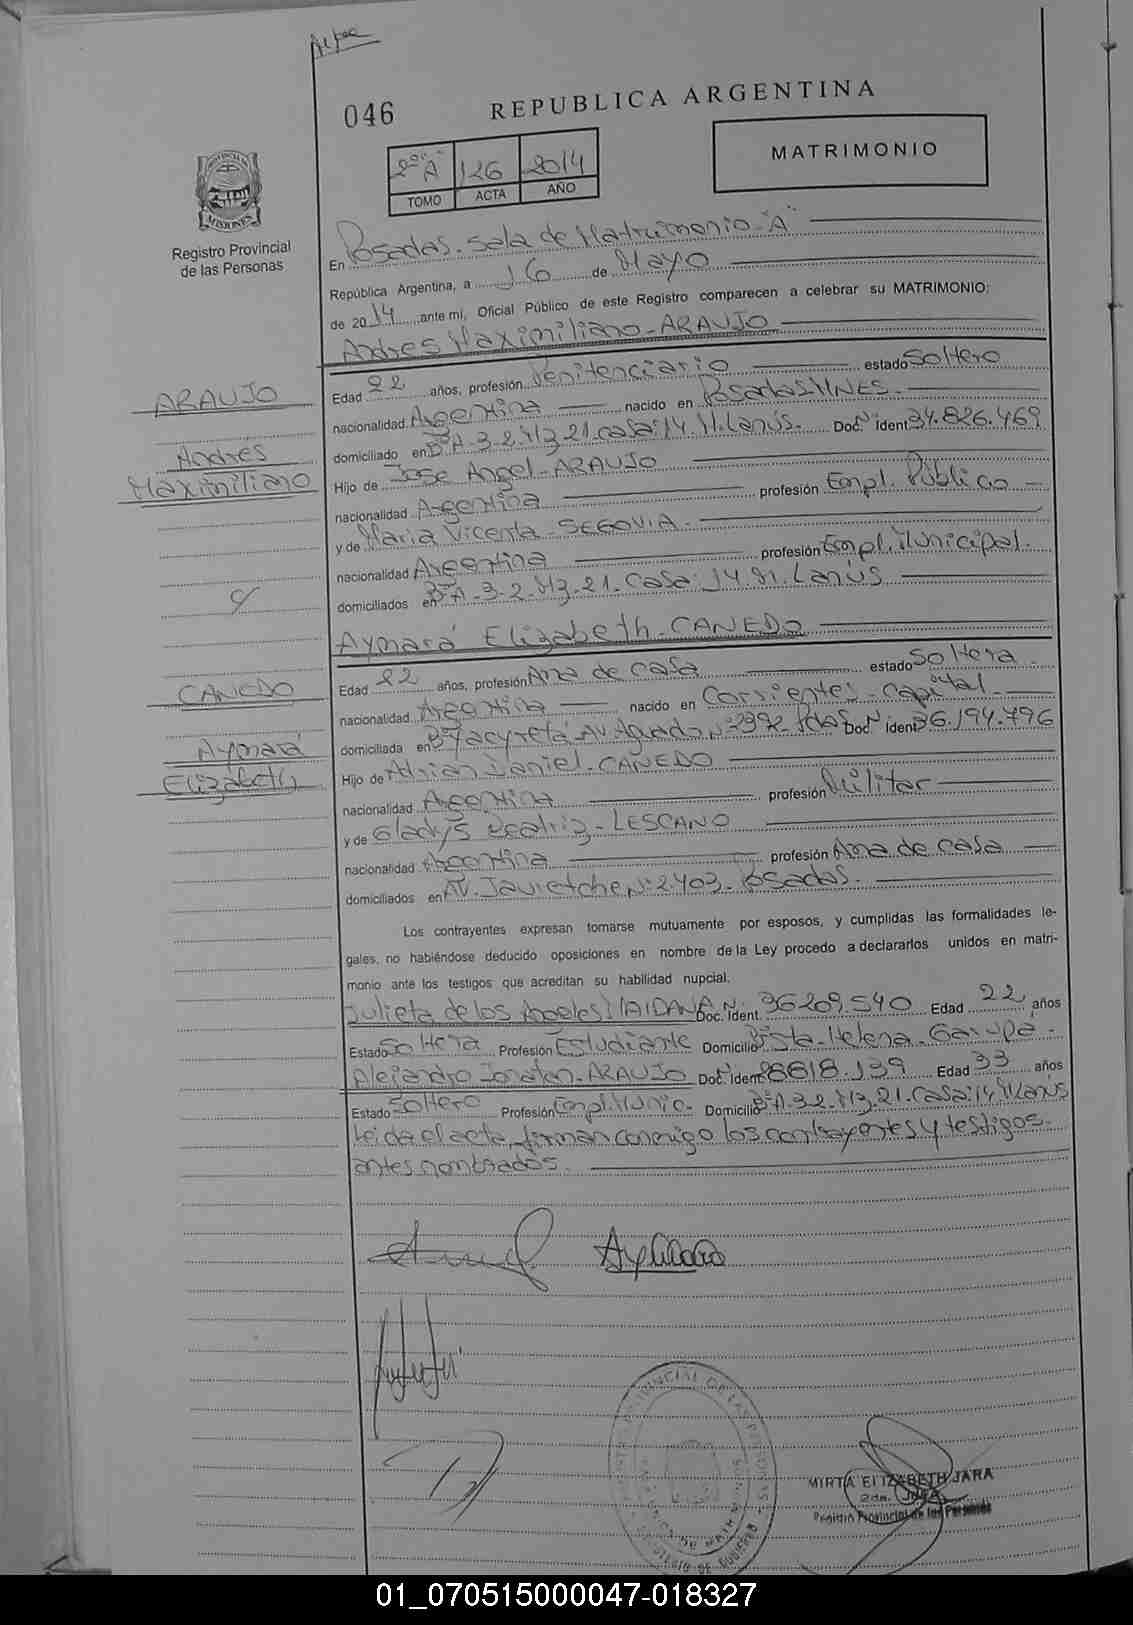 046
REPUBLICA ARGENTINA
2º "A" 126 2014
TOMO ACTA AÑO
MATRIMONIO
MISIONES
Registro Provincial
de las Personas
En Posadas. Sala de Matrimonio "A"
República Argentina, a 16 de Mayo
de 2014 ante mi, Oficial Público de este Registro comparecen a celebrar su MATRIMONIO:
Andres Maximiliano ARAUJO
Edad 22 años, profesión Penitenciario estado Soltero
ARAUJO
Andrés
Maximiliano
nacionalidad Argentina nacido en Posadas MNES.
domiciliado en Bº A-3-2. Mz 21. casa: 14 H. Lanús. Doc. Nº ident 34.826.469
Hijo de Jose Angel ARAUJO
nacionalidad Argentina profesión Empl. Público
y de Maria Vicenta SEGOVIA
nacionalidad Argentina profesión Empl. Municipal.
domiciliados en Bº A-3-2. Mz 21. Casa: 14 Lanús
c/
Aymará Elizabeth CANEDO
CANEDO
Aymará
Elizabeth
Edad 22 años, profesión Ama de casa estado Soltera
nacionalidad Argentina nacido en Corrientes - Capital
domiciliada en Bº Yacyretá Av. Aguado Nº 2992 Pdas Doc. Nº ident 36.194.796
Hijo de Adrian Daniel CANEDO
nacionalidad Argentina profesión Militar
y de Gladys Beatriz LESCANO
nacionalidad Argentina profesión Ama de casa
domiciliados en AV. Jauretche Nº 2.403 Posadas.
Los contrayentes expresan tomarse mutuamente por esposos, y cumplidas las formalidades le-
gales, no habiéndose deducido oposiciones en nombre de la Ley procedo a declararlos unidos en matri-
monio ante los testigos que acreditan su habilidad nupcial.
Julieta de los Angeles MAIDANA Doc. Nº Ident. 36209.540 Edad 22 años
Estado Soltera Profesión Estudiante Domicilio Sta. Helena. Garupá.
Alejandro Jonatan ARAUJO Doc. Nº Ident. 28618.139 Edad 33 años
Estado Soltero Profesión Empl. Munic. Domicilio Bº A-3-2. Mz 21. Casa: 14 Lanús
Leida el acta, firman conmigo los contrayentes y testigos
antes nombrados.
MIRTA ELIZABETH JARA
2da. Jefa
Registro Provincial de las Personas
01_070515000047-018327